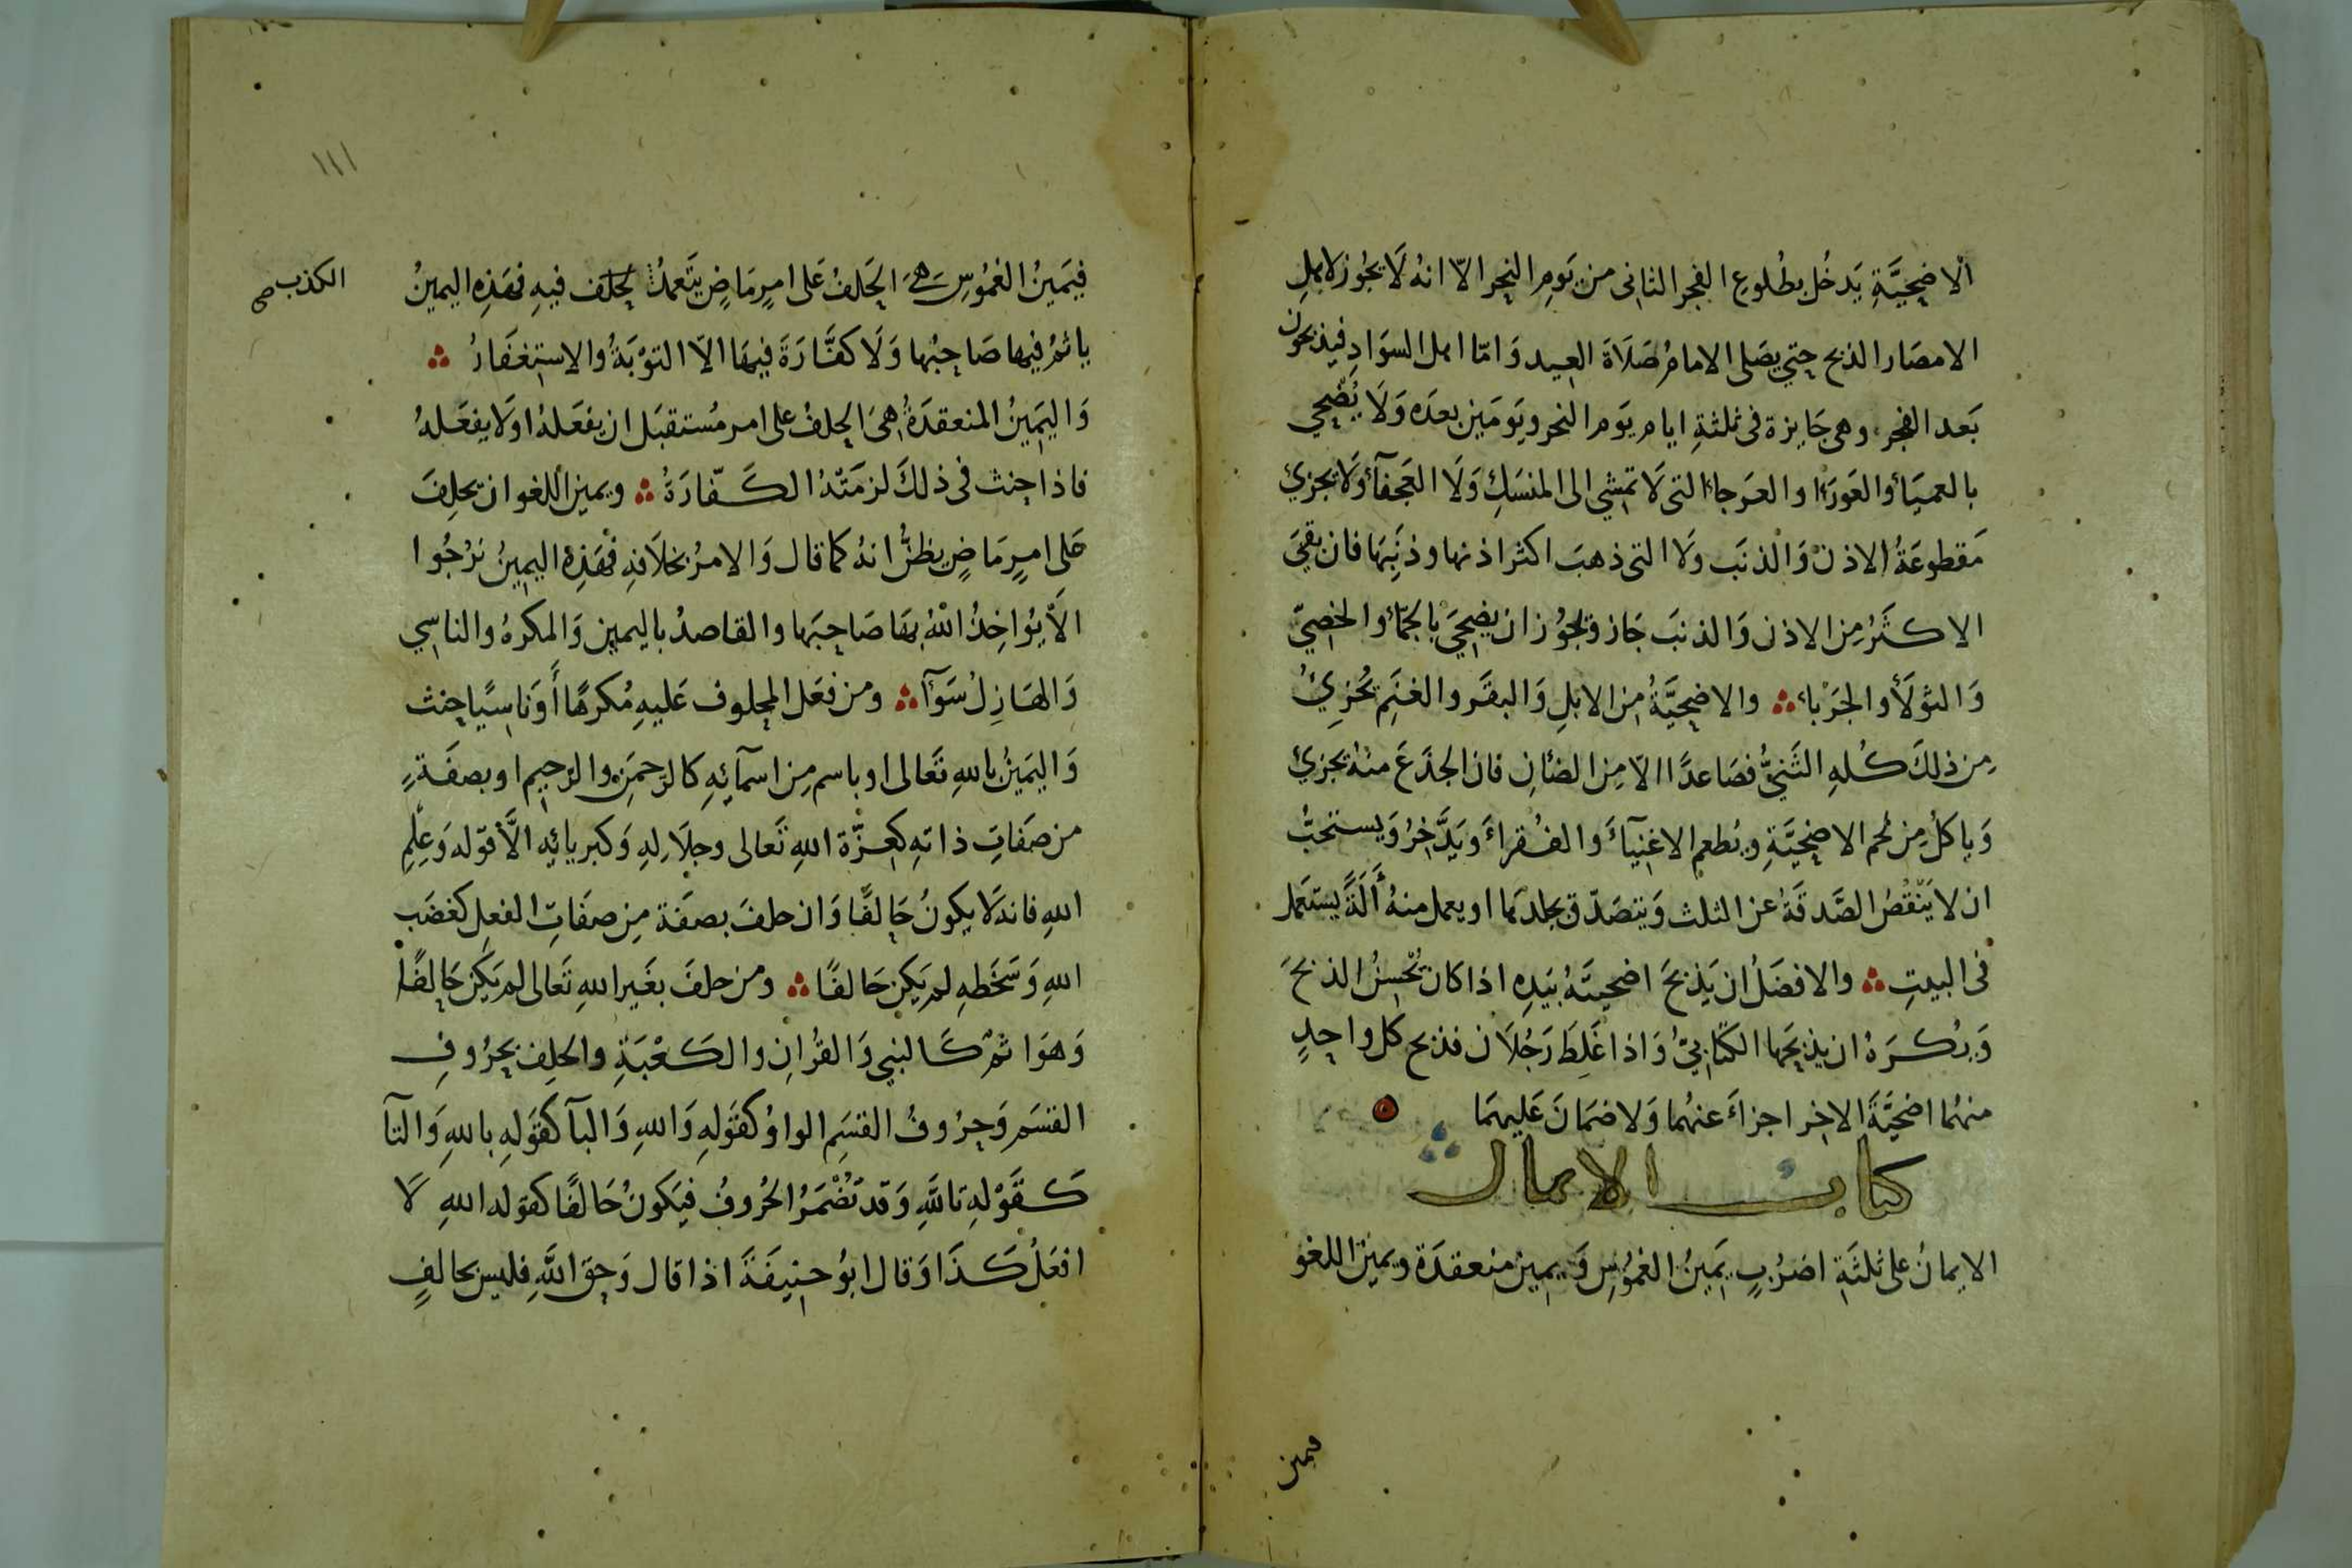 الاضحيَّةِ يَدخُل بطُلوعِ الفجر الثاني من يَومِ النحر الّا انهُ لَا يجُوز لاهلِ
الامصَار الذبح حتي يصَلى الامامُ صَلَاةَ العيد وَامّا اهل السوَادِ فيذبحون
بَعد الفجر وهى جَايزة فى ثلثةِ ايام يَوم النحر ويَومَين بعدَه وَلَا يُضَّحي
بالعميَاءِ والعَورَاءِ والعَرجاء التى لَا تمشي الى المنسَكِ وَلَا العَجفآءِ وَلَا تجزئ
مَقطوعَةُ الاذن وَالذنَب وَلَا التى ذهبَ اكثر اذنها وذنَبِهَا فان بقيَ
الاكثَرُ مِن الاذن وَالذنبَ جَاز ويجُوز ان يضحيَ بالجمّاءِ والخصِيّ
وَالثولَأ والجَرْباء ؞ والاضحيَّةُ مِن الابلِ وَالبقَر والغنَمِ يُجزِئُ
مِن ذلكَ كُلهِ الثَنيُّ فصَاعدًا الّا مِن الضئانِ فان الجذَعَ منهُ يجزئ
وَياكلُ مِن لحم الاضحيَّةِ ويُطعم الاغنيَآءَ والفُقراءَ ويَدَّخِرُ وَيستحبُّ
ان لا يَنْقُصُ الصَّدقَةُ عن الثلث وَيتصَدّق بجلدهَا او يعمل منهُ أَلَةً يستعَمل
فى البيتِ ؞ والافضَلُ ان يَذبحَ اضحيتَهُ بيَدِهِ اذا كان يُحسِنُ الذبحَ
وَيُكرَهُ ان يذبحَها الكتَابيُّ وَاذا غَلِطَ رَجُلَان فذبح كل واحِدٍ
منهُما اضحيَّةَ الاخِر اجزاءَ عنهُما وَلا ضمَانَ عَليهمَا
كتاب الايمان
الايمانُ على ثلثَةِ اضرُبٍ يَمينُ الغمُوسِ وَيمين منعقدَة ويمينُ اللغو
فيمين
١١١
فيَمينُ الغمُوسِ هىَ الحَلفُ عَلى امرٍ مَاضٍ يتَعمدُ يحلف فيهِ فهَذِهِ اليمينُ
الكذب صح
ياثمُ فيها صَاحِبُها وَلَا كفَّارَةَ فيهَا الّا التوْبَةُ والاستِغفَارُ ؞
وَاليَمينُ المنعقدَةُ هىَ الحلفُ على امر مُستقبَل ان يفعَلهُ اوَلَا يفعَلهُ
فاذا حِنث فى ذلكَ لزمَتْهُ الكَفّارَةُ ؞ ويمينُ اللغو ان يحلِفَ
عَلى امرٍ مَاضٍ يظنُّ انهُ كما قال وَالامرُ بخلَافهِ فهَذِهِ اليمينُ نَرْجُوا
الَّا يُواخِذُ اللهُ بهَا صَاحِبَها والقاصدُ باليمين وَالمكرهُ والناسِي
وَالهَازِلُ سَوَآء ؞ ومن فعَل المحلوف عَليهِ مُكرهًا أَوَناسيًا حنث
وَاليَمينُ باللهِ تَعَالى او باسم مِن اسمآئهِ كالرَحمَنِ والرَحِيم او بصفَةٍ
من صَفاتِ ذاتهِ كعِزّة اللهِ تَعالى وجلَالهِ وَكبريائهِ الَّا قوَله وَعِلمِ
اللهِ فانهُ لَا يكونُ حَالفًا وَان حلفَ بصفَة مِن صفَاتِ الفعِل كغضَب
اللهِ وَسَخَطهِ لم يَكن حَالفًا ؞ ومن حلفَ بغَير اللهِ تَعالى لم يَكن حَالِفًا
وَهوَ اثمٌ كَالنبي وَالقرُانِ والكَعْبَةِ والحلِف بحرُوفِ
القسَم وَحرُوفُ القسَمِ الواوُ كقَولهِ وَاللهِ وَالبآ كقَولهِ باللهِ وَالتآ
كَقَوْلهِ تاللَّهِ وَقد تُضْمَرُ الحُروفُ فيَكونُ حَالفًا كقوَله اللهِ لَا
افعَلُ كَذَا وَقال ابوُ حنِيفَةَ اذا قال وَحق اللَّهِ فليس بحالفٍ